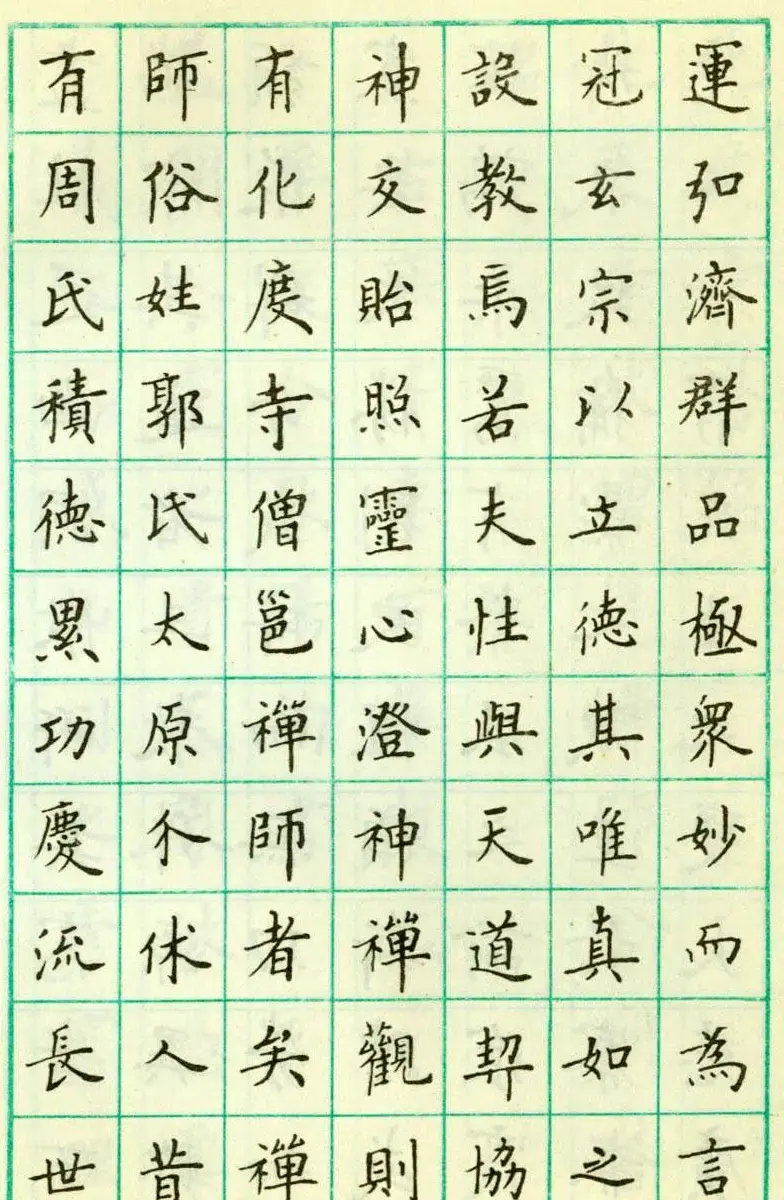 運弘濟群品極衆妙而為言
冠玄宗以立德其唯真如之
設教焉若夫性與天道契協
神交貽照靈心澄神禪觀則
有化度寺僧邕禪師者矣禪
師俗姓郭氏太原介休人昔
有周氏積德累功慶流長世